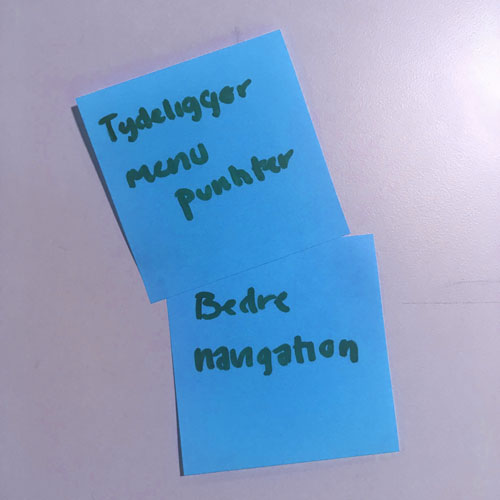 Tydeligger
menu
punkter
Bedre
navigation